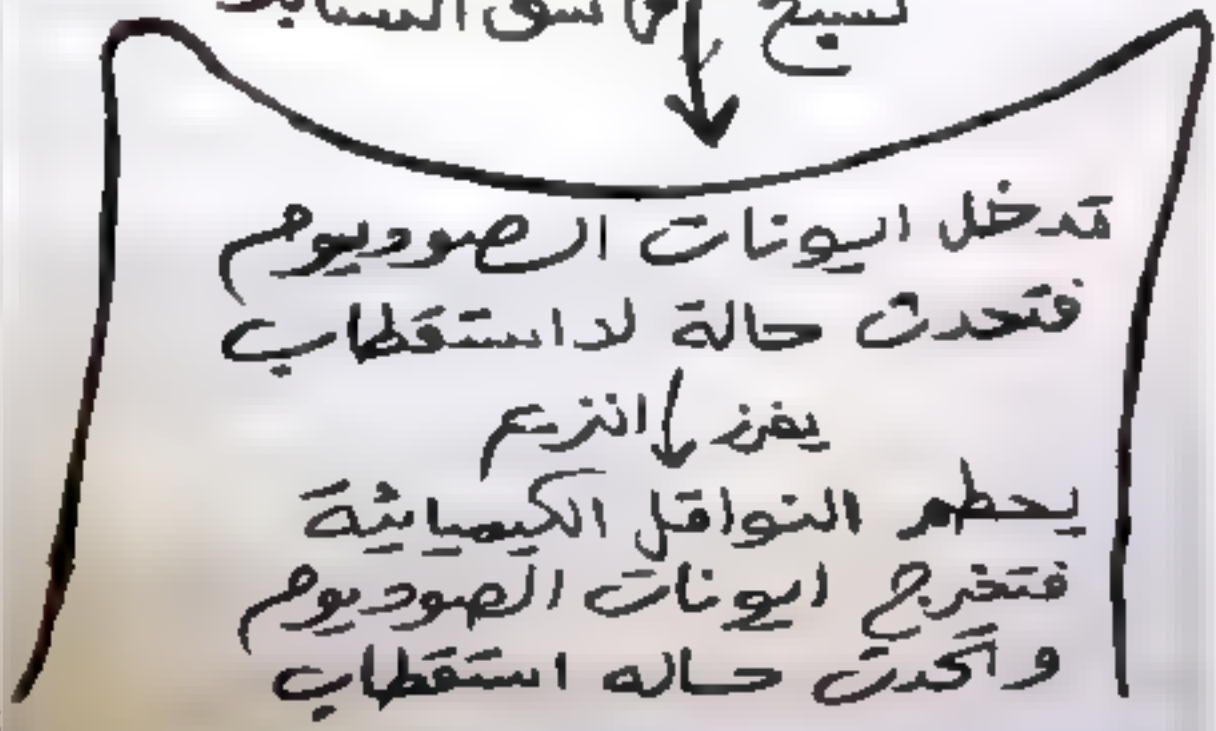 تدخل ايونات الصوديوم
فتحدث حالة لا استقطاب
يفرز انزيم
يحطم النواقل الكيميائية
فتخرج ايونات الصوديوم
وتحدث حاله استقطاب